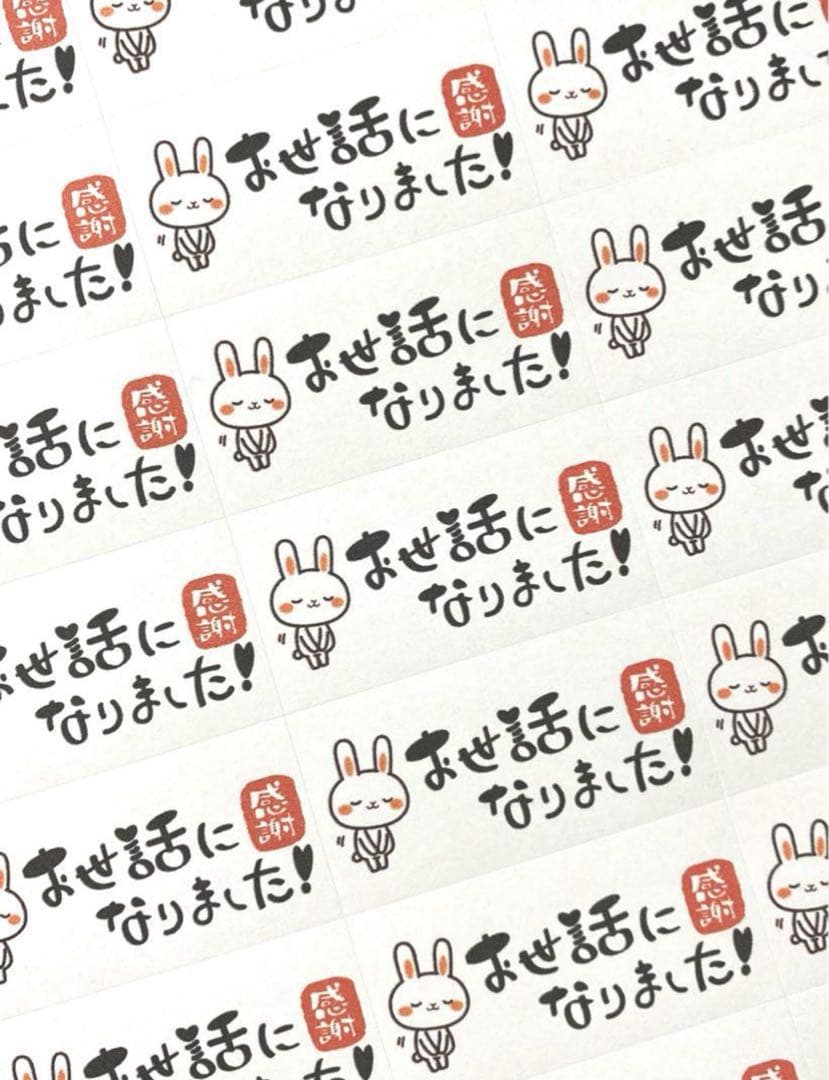 感謝
した!
お世話に
なりまし
お世話に 感謝
なりました!
に 感謝
ました!
お世話
なり
お世話に 感謝
なりました!
話に 感謝
なりました!
お世
お世話に 感謝
なりました!
世話に 感謝
なりました!
お
お世話に 感謝
なりました!
お世話に 感謝
なりました!
お世話に 感謝
なりました!
お世話に 感謝